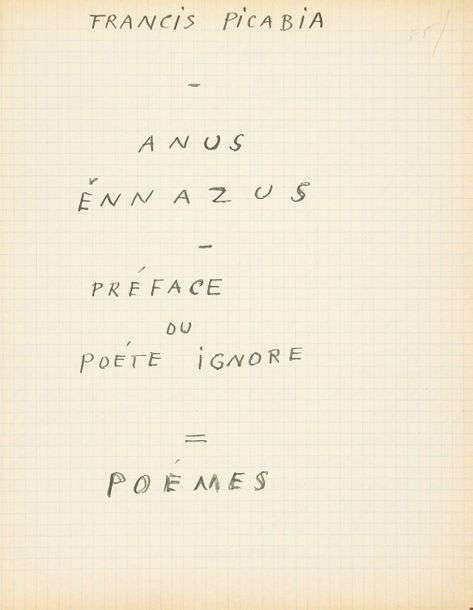 FRANCIS PICABIA
-
ANUS
ËNNAZUS
-
PRÉFACE
DU
POÉTE iGNORE
=
POÉMES